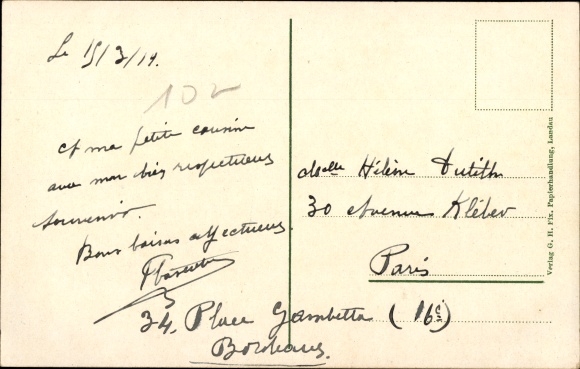 Le 15/3/19.
102
et ma petite cousine
avec mon bien respectueux
souvenir.
Bons baisers affectueux
34, Place Gambetta
Bordeaux.
Mselle Hélène Dutilh
30 Avenue Kléber
Paris
(16e)
Verlag G. H. Fix, Papierhandlung, Landau